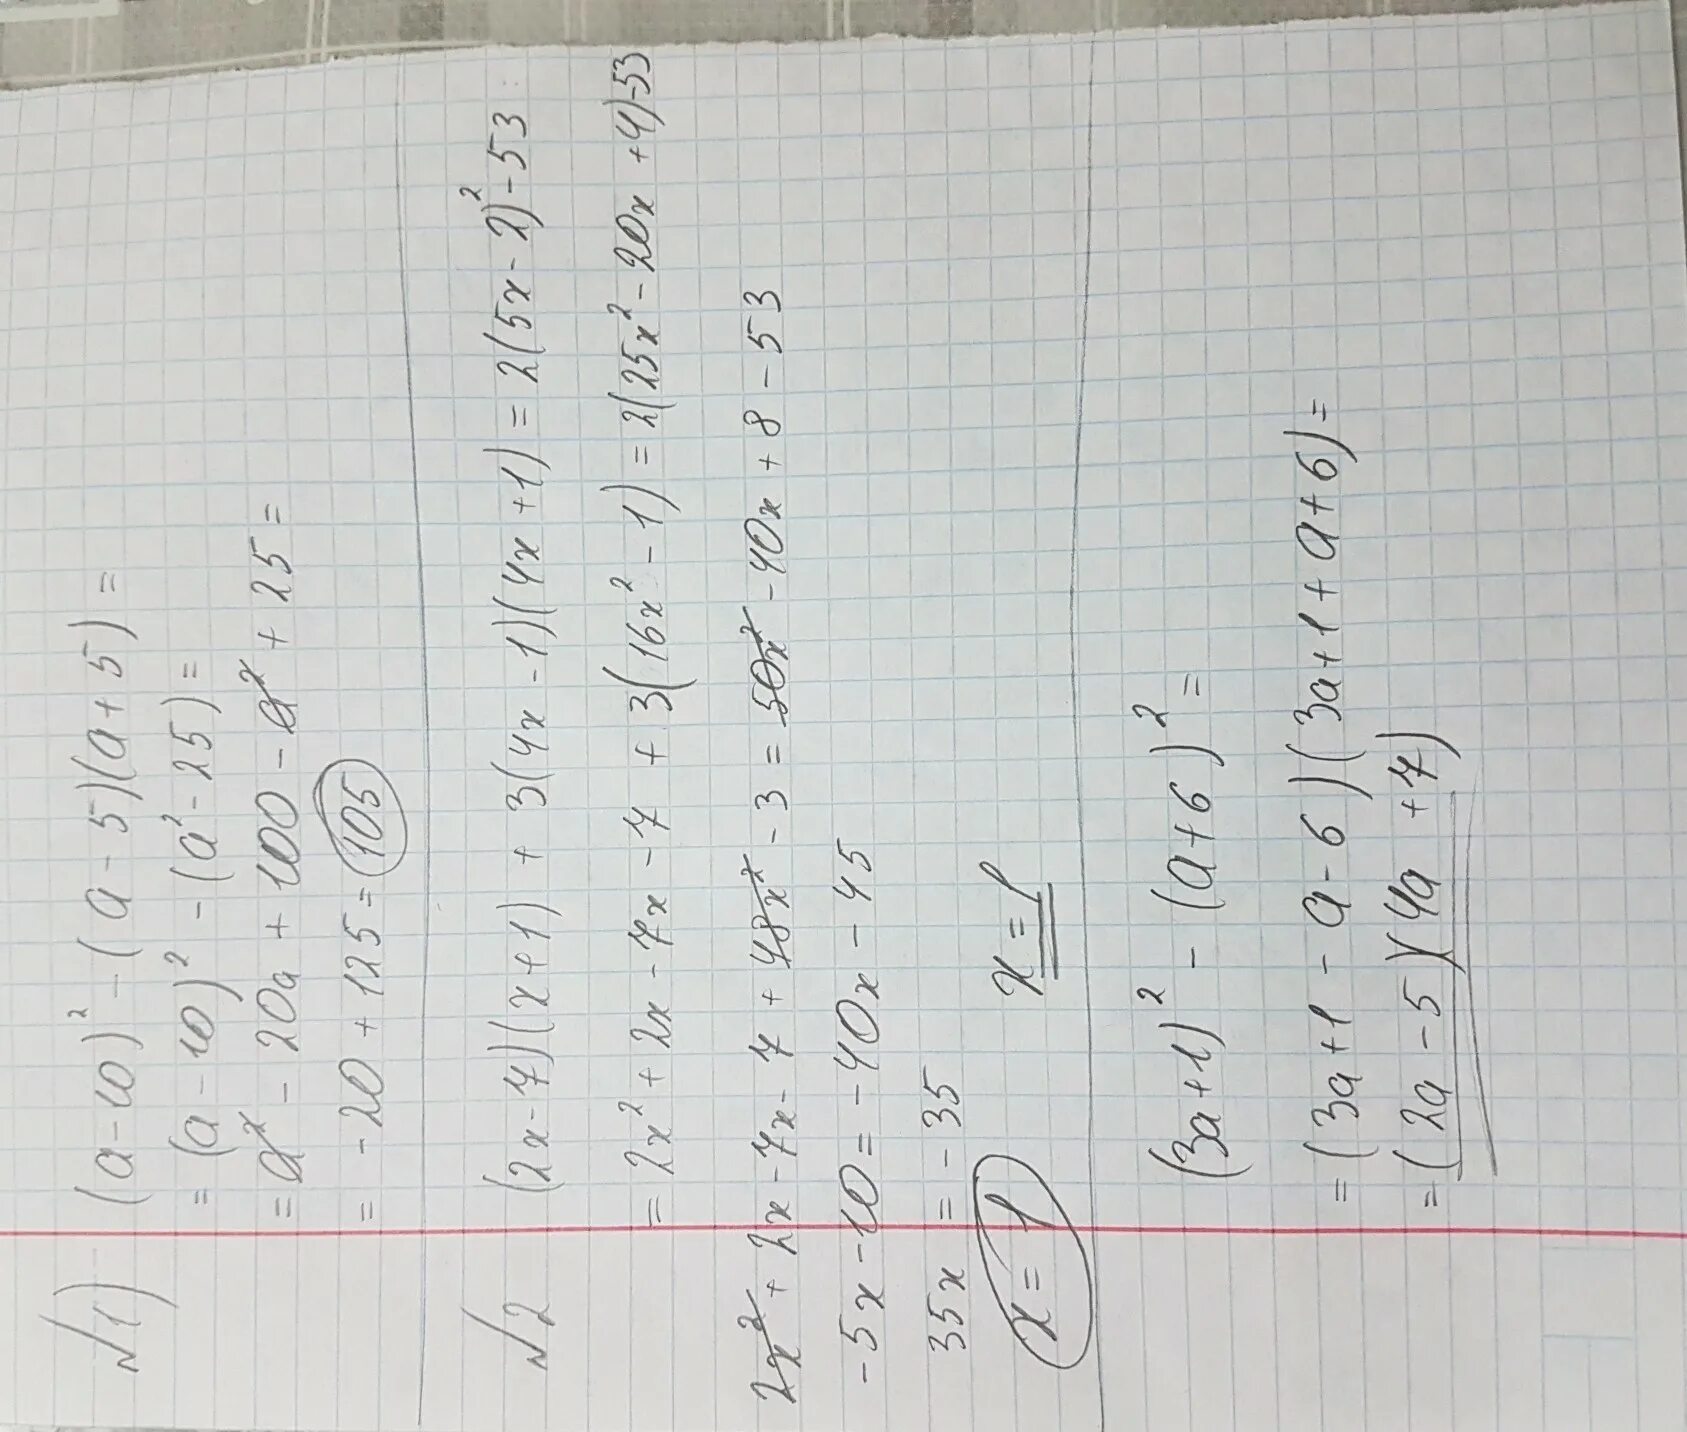 №1) (a-10)² - (a-5)(a+5) =
= (a-10)² - (a²-25) =
= a² - 20a + 100 - a² + 25 =
= -20 + 125 = 105
№2 (2x-7)(x+1) + 3(4x-1)(4x+1) = 2(5x-2)² - 53
= 2x² + 2x - 7x - 7 + 3(16x² - 1) = 2(25x² - 20x + 4) - 53
2x² + 2x - 7x - 7 + 48x² - 3 = 50x² - 40x + 8 - 53
-5x - 10 = -40x - 45
35x = -35
x = 1 x = 1
(3a+1)² - (a+6)² =
= (3a+1 - a - 6)(3a+1+a+6) =
= (2a-5)(4a+7)